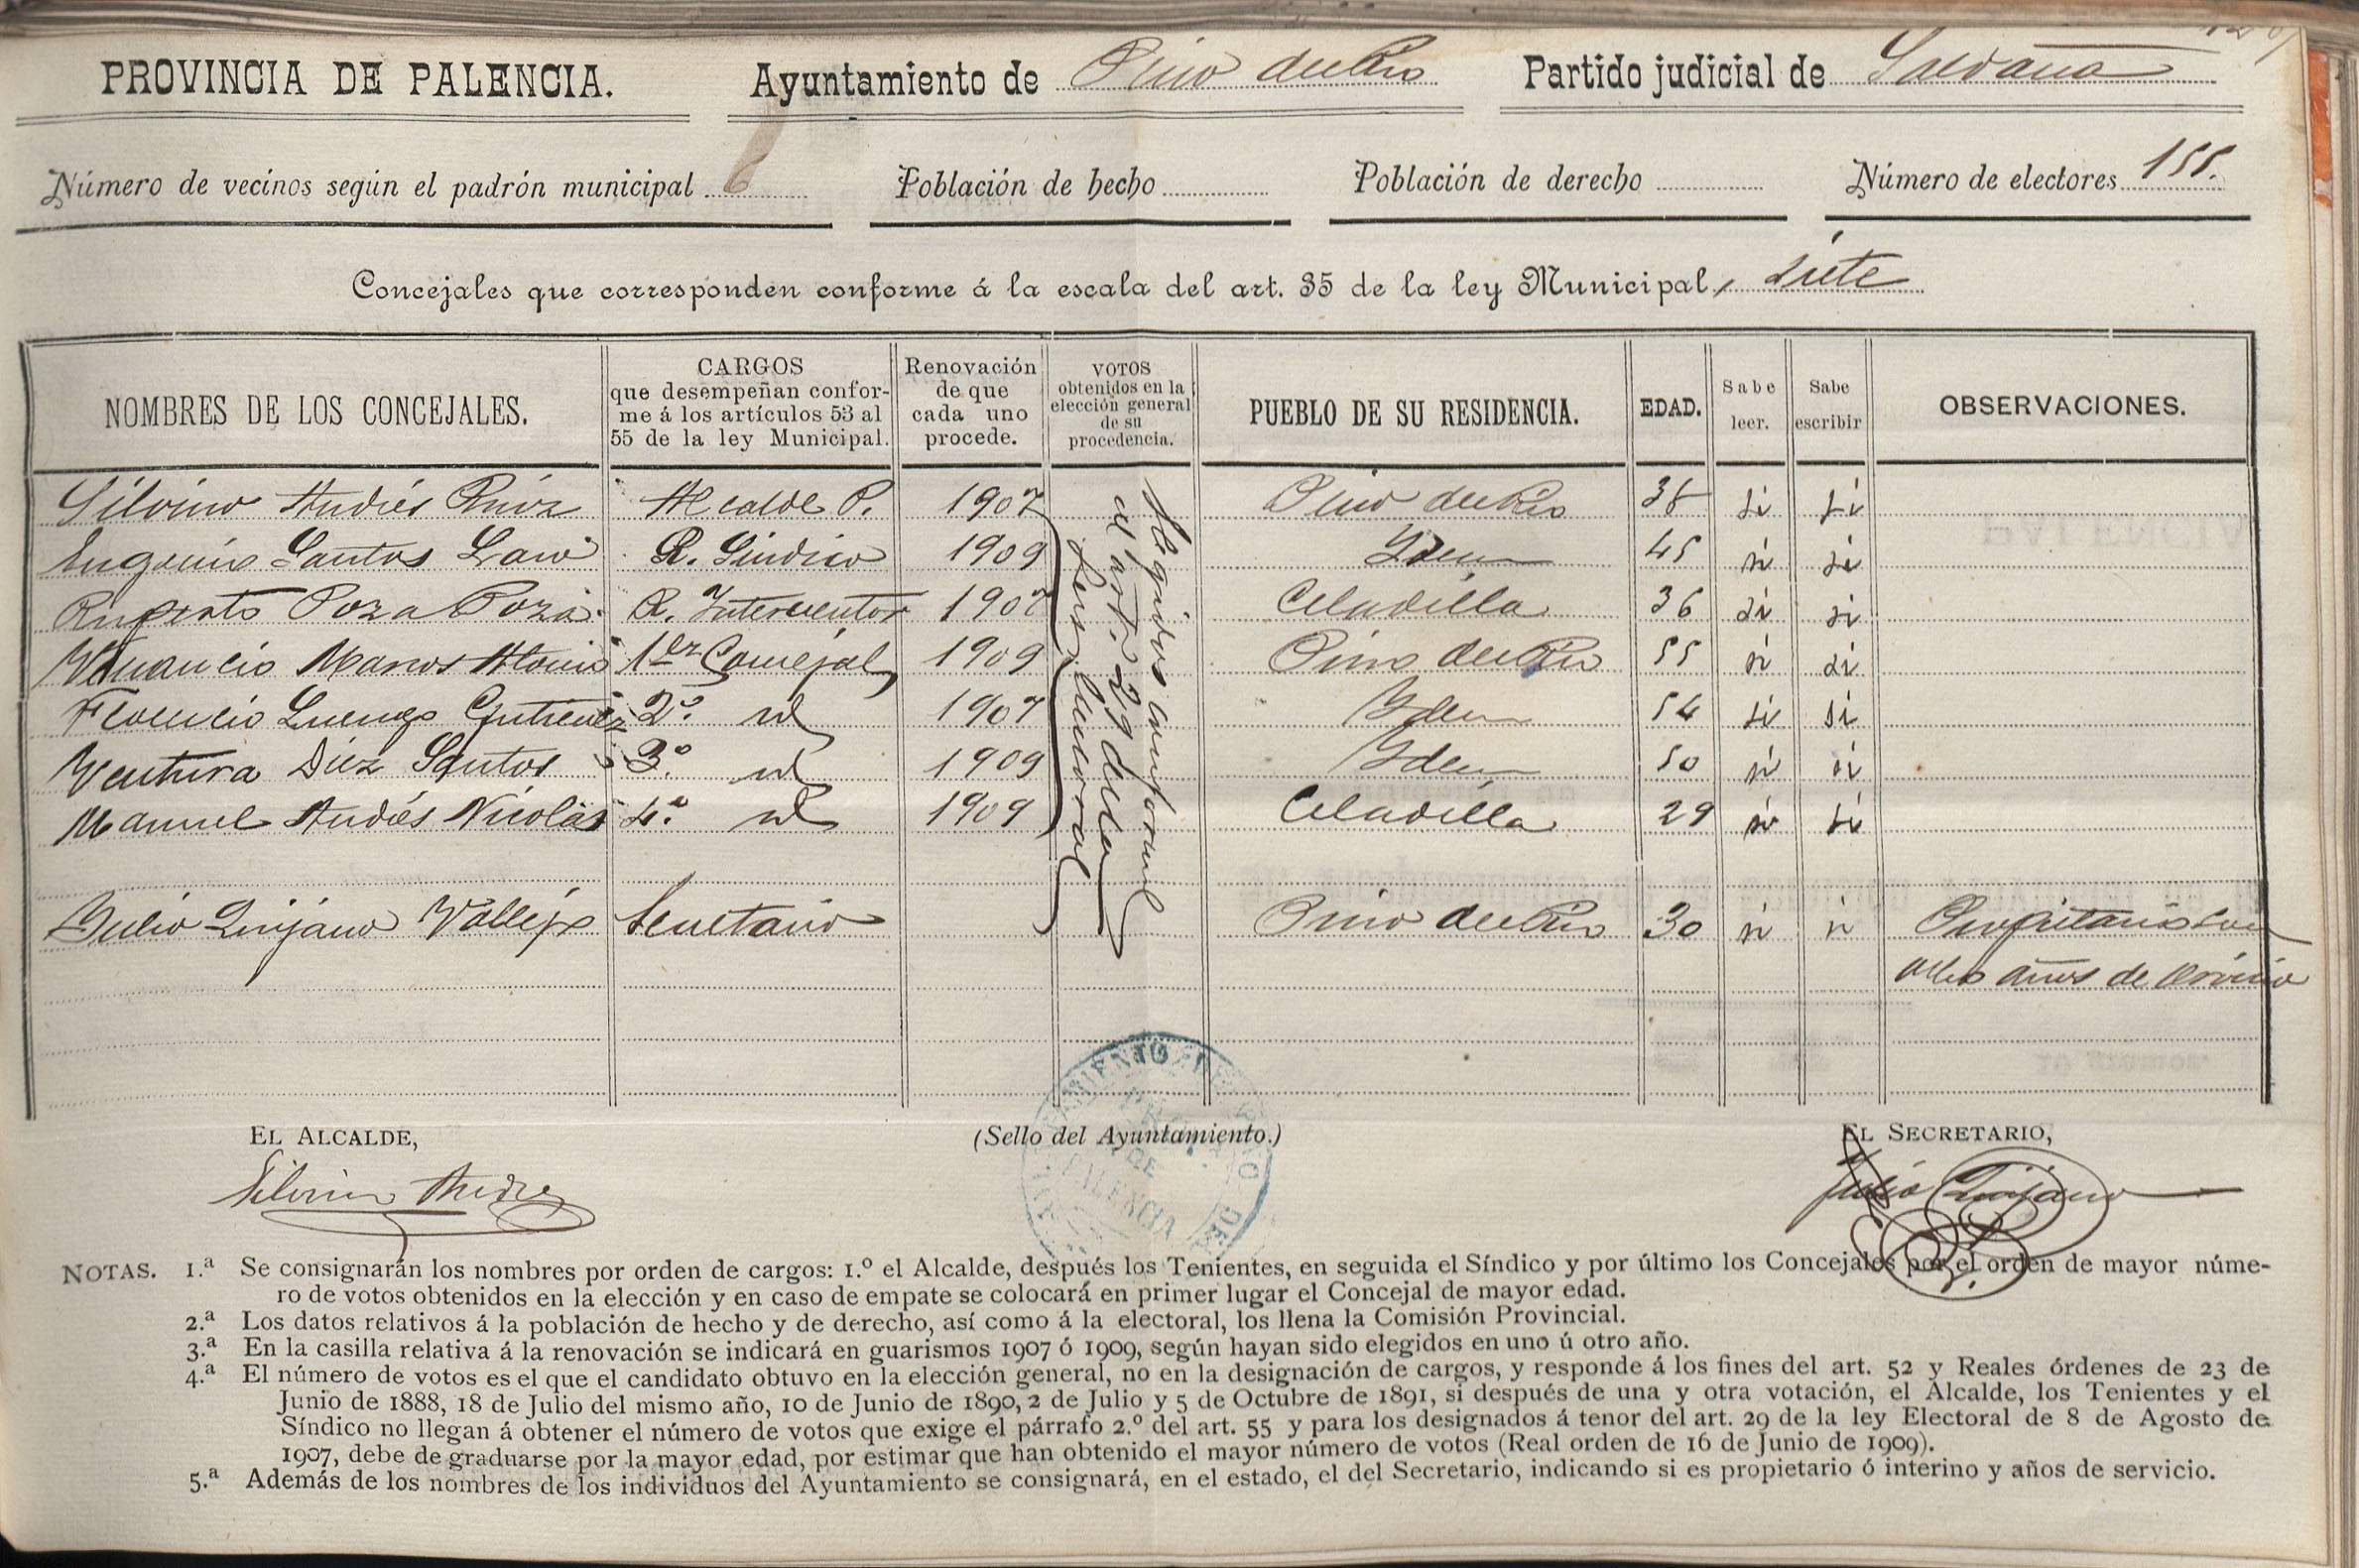 PROVINCIA DE PALENCIA. Ayuntamiento de Pino del Rio Partido judicial de Saldaña
Número de vecinos según el padrón municipal Población de hecho Población de derecho Número de electores 155.
Concejales que corresponden conforme á la escala del art. 35 de la ley Municipal, siete
NOMBRES DE LOS CONCEJALES. CARGOS que desempeñan conforme á los artículos 53 al 55 de la ley Municipal. Renovación de que cada uno procede. VOTOS obtenidos en la elección general de su procedencia. PUEBLO DE SU RESIDENCIA. EDAD. Sabe leer. Sabe escribir OBSERVACIONES.
Silvino Andrés Ruiz Alcalde P. 1907 Pino del Rio si si
Eugenio Santos Laso R. Síndico 1909 Idem 45 si si
Ruperto Poza Poza R. Interventor 190 Celadilla 36 si si
Venancio Manos Alonso 1er Concejal 1909 Pino del Rio 55 si si
Florencio Luengo Gutierrez 2º. id 1907 Idem 54 si si
Ventura Diez Santos 3º. id 1909 Idem 50 si si
Manuel Andrés Nicolás 4º. id 1909 Celadilla 29 si si
Elegidos conforme
al art. 29 de la
Ley electoral
Julio Quijano Vallejo Secretario Pino del Rio 30 si si Propietario con
ocho años de servicio
EL ALCALDE, (Sello del Ayuntamiento.) EL SECRETARIO,
Silvino Andrés Julio Quijano
PALENCIA
NOTAS. 1.ª Se consignarán los nombres por orden de cargos: 1.º el Alcalde, después los Tenientes, en seguida el Síndico y por último los Concejales por el orden de mayor núme-
ro de votos obtenidos en la elección y en caso de empate se colocará en primer lugar el Concejal de mayor edad.
2.ª Los datos relativos á la población de hecho y de derecho, así como á la electoral, los llena la Comisión Provincial.
3.ª En la casilla relativa á la renovación se indicará en guarismos 1907 ó 1909, según hayan sido elegidos en uno ú otro año.
4.ª El número de votos es el que el candidato obtuvo en la elección general, no en la designación de cargos, y responde á los fines del art. 52 y Reales órdenes de 23 de
Junio de 1888, 18 de Julio del mismo año, 10 de Junio de 1890, 2 de Julio y 5 de Octubre de 1891, si después de una y otra votación, el Alcalde, los Tenientes y el
Síndico no llegan á obtener el número de votos que exige el párrafo 2.º del art. 55 y para los designados á tenor del art. 29 de la ley Electoral de 8 de Agosto de
1907, debe de graduarse por la mayor edad, por estimar que han obtenido el mayor número de votos (Real orden de 16 de Junio de 1909).
5.ª Además de los nombres de los individuos del Ayuntamiento se consignará, en el estado, el del Secretario, indicando si es propietario ó interino y años de servicio.